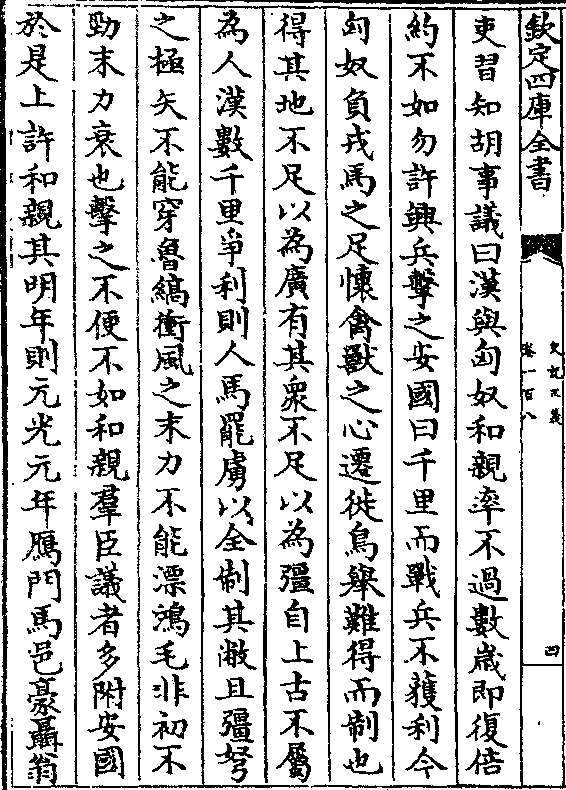 欽定四庫全書
史記正義
卷一百八
四
吏習知胡事議曰漢與匈奴和親率不過數嵗即復倍
約不如勿許興兵擊之安國曰千里而戰兵不獲利今
匈奴負戎馬之足懷禽獸之心遷徙鳥舉難得而制也
得其地不足以為廣有其衆不足以為彊自上古不屬
為人漢數千里爭利則人馬罷虜以全制其敝且彊弩
之極矢不能穿魯縞衝風之末力不能漂鴻毛非初不
勁末力衰也擊之不便不如和親羣臣議者多附安國
於是上許和親其明年則元光元年鴈門馬邑豪聶翁